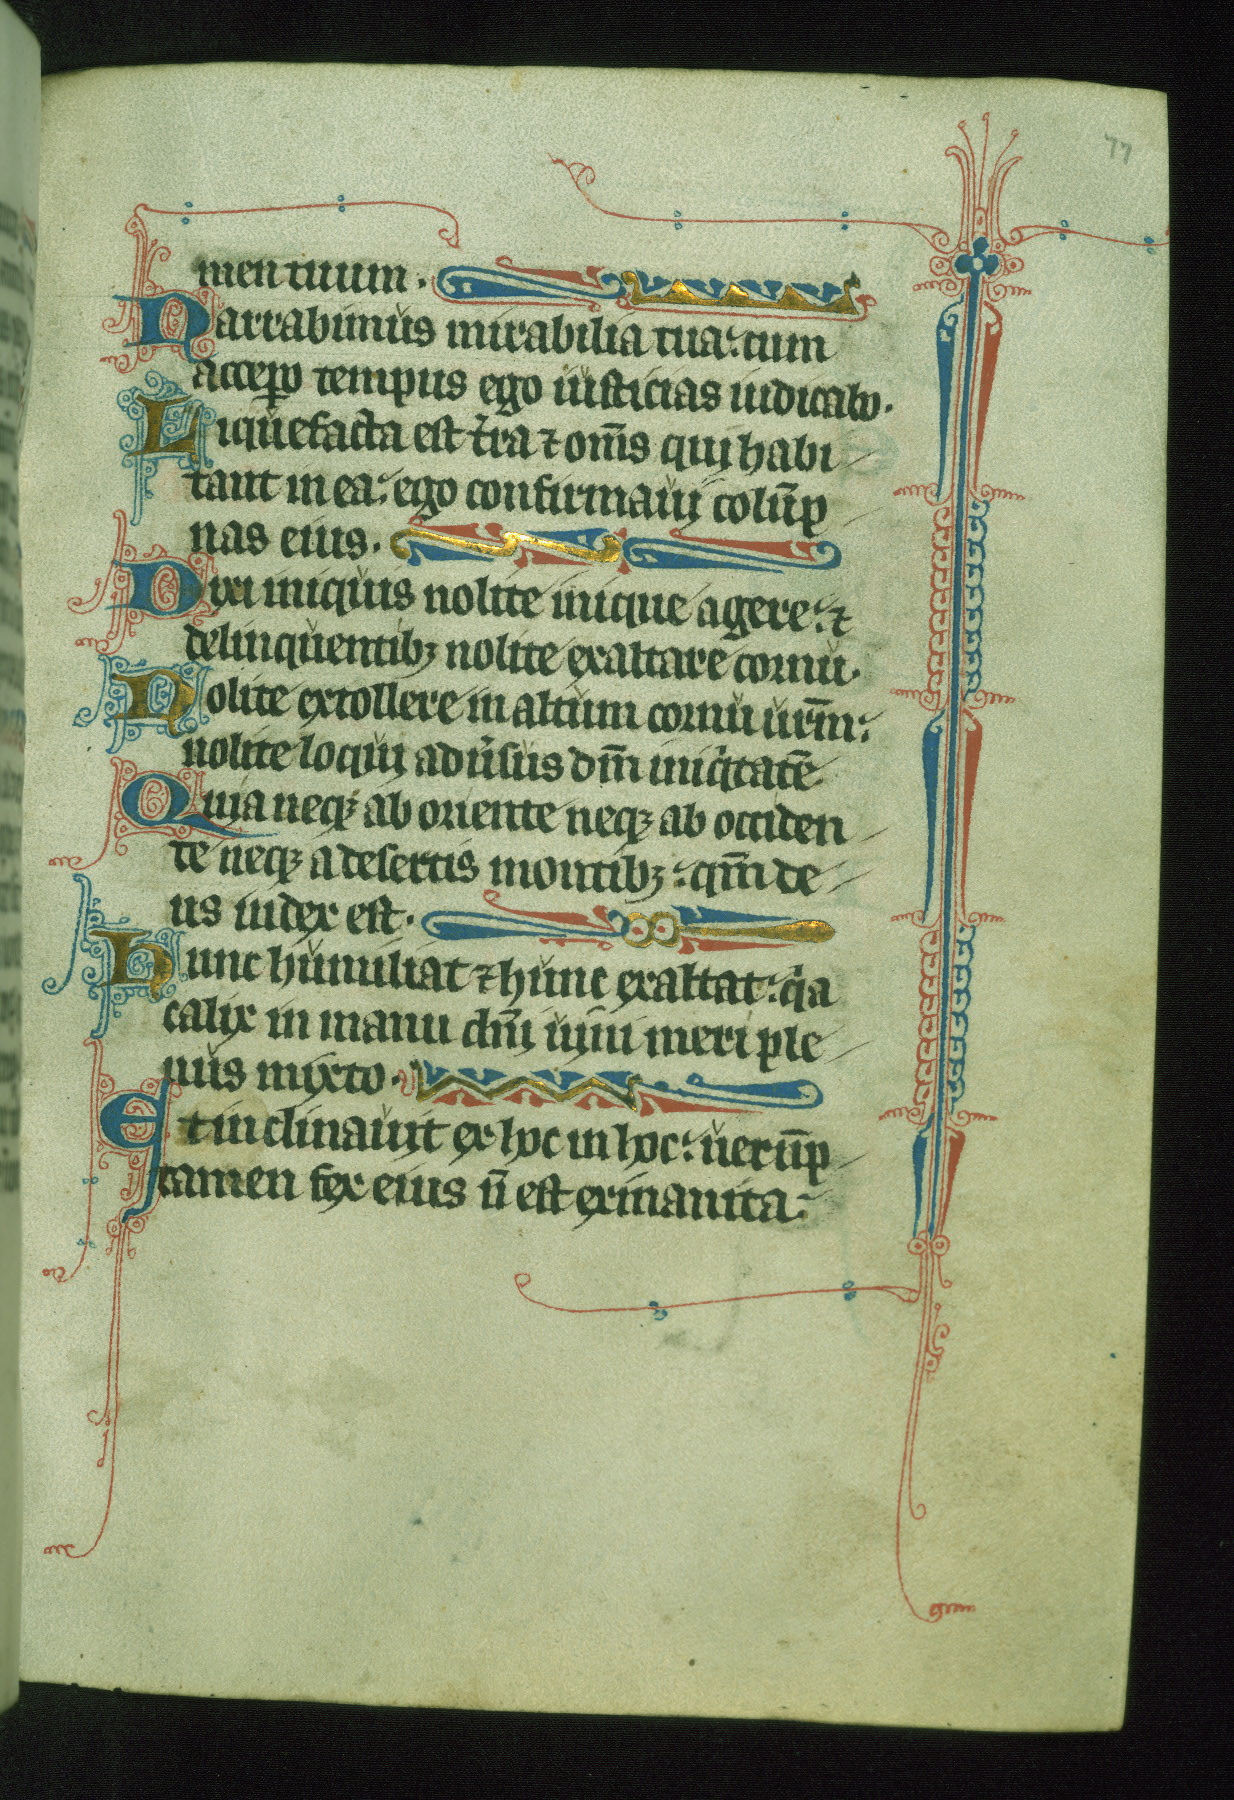 77
men tuum.
Narrabimus mirabilia tua: cum
accep̱o tempus ego iusticias iudicabo.
Liquefacta est t̄ra ⁊ om̄s qui habi
tant in ea: ego confirmaui colūp
nas eius.
Dixi iniquis nolite inique agere: ⁊
delinquentibꝫ nolite exaltare cornu.
Nolite extollere in altum cornu ur̄m:
nolite loqui adu̓sus dm̄ iniqͥtatē
Quia neqꝫ ab oriente neqꝫ ab occiden
te neqꝫ a desertis montibꝫ: qm̄ de
us iudex est.
Hunc humiliat ⁊ hunc exaltat: qͥa
calix in manu dn̄i uini meri ple
nus mixto.
Et inclinauit ex hoc in hoc: uerūp
tamen fex eius n̄ est exinanita: